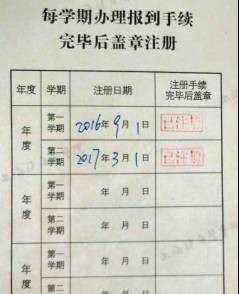 每学期办理报到手续
完毕后盖章注册
年度 学期 注册日期 注册手续完毕后盖章
年度 第一学期 2016年9月1日 已注册
第二学期 2017年3月1日 已注册
年度 第一学期 年 月 日
第二学期 年 月 日
年度 第一学期 年 月 日
第二 年 月 日